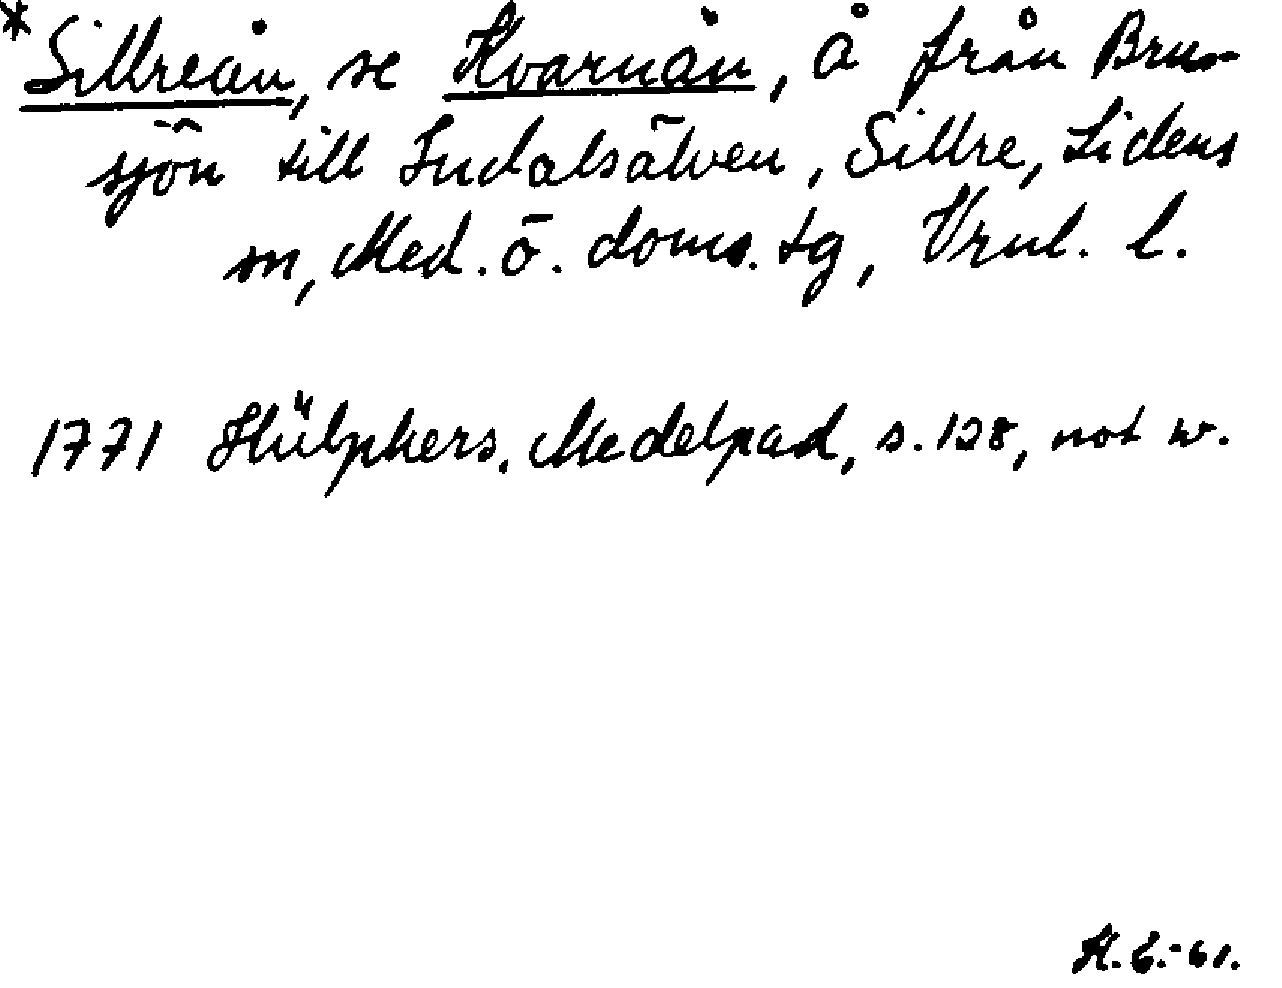 *Sillreån, se Kvarnån, å från Brun-
sjön till Indalsälven, Sillre, Lidens
sn, Med. ö. doms. tg, Vrnl. l.
1771 Hülphers, Medelpad, s. 128, not w.